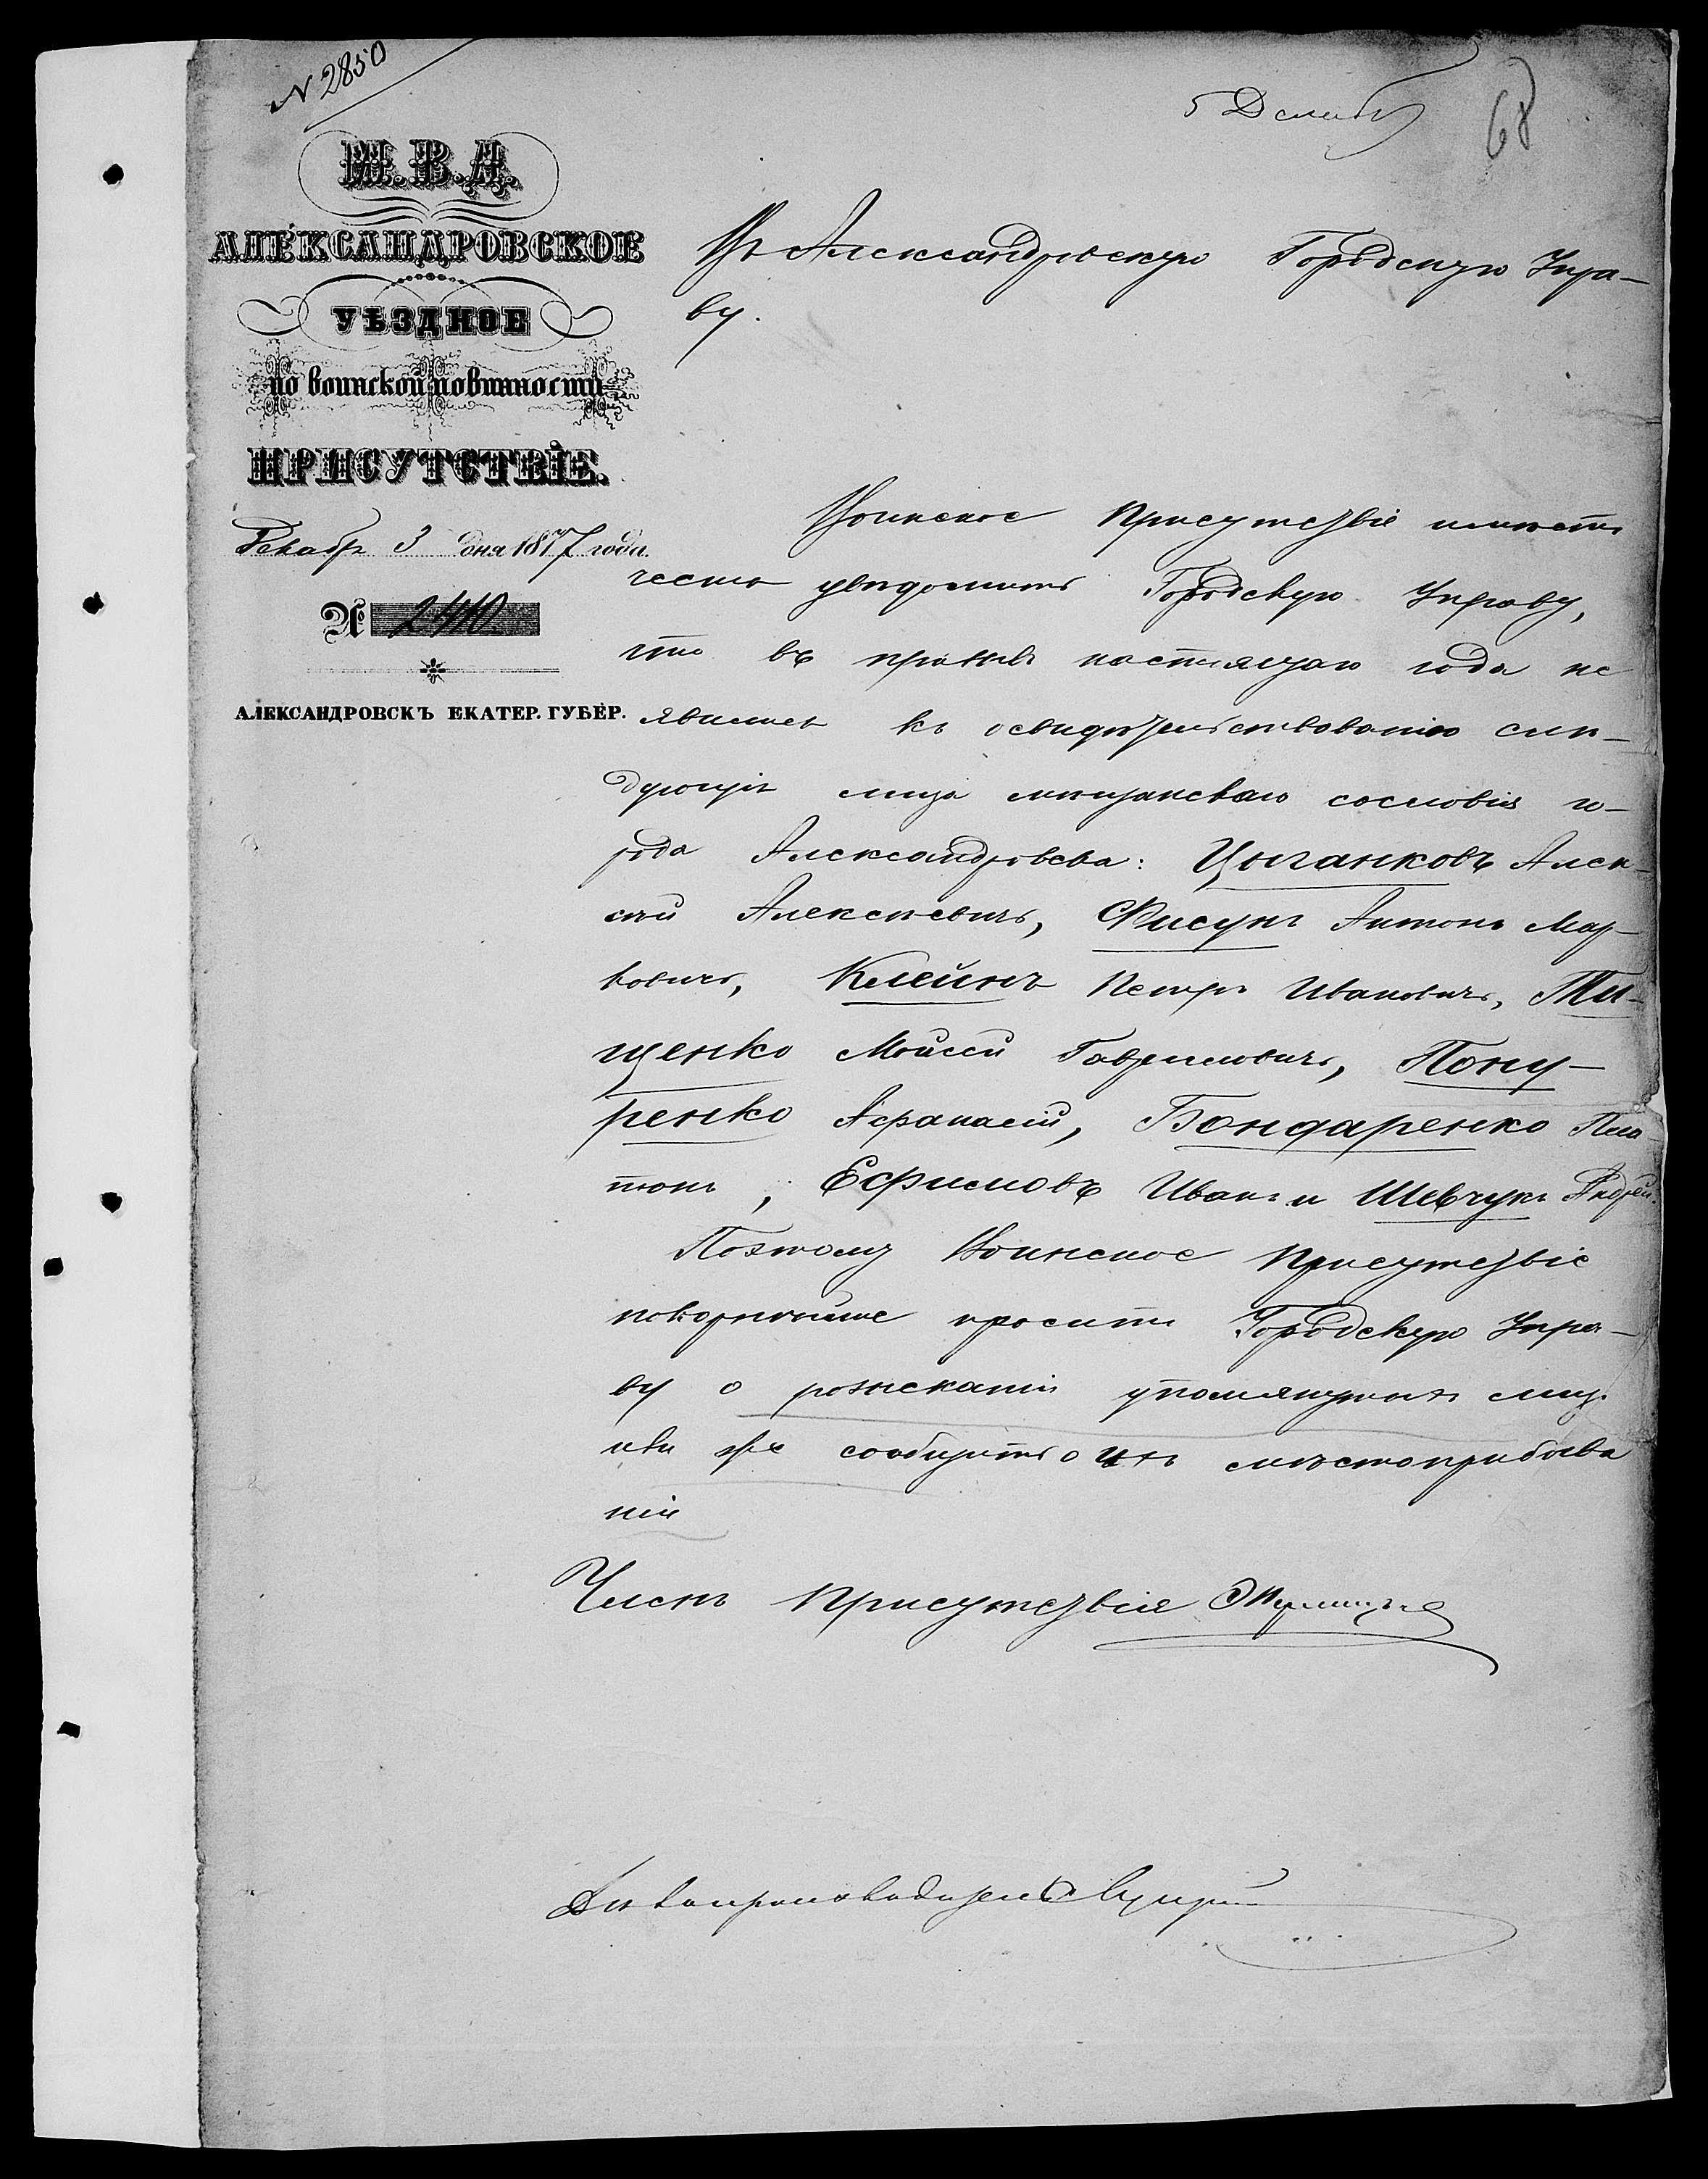 N 2850
5 Декабр
68
М.В.Д.
АЛЕКСАНДРОВСКОЕ
УѢЗДНОЕ
по воинской повинности
ПРИСУТСТВІЕ.
Декабр 3 дня 1877 года.
№ 2410.
АЛЕКСАНДРОВСКЪ ЕКАТЕР. ГУБЕР.
Въ Александровскую Городскую Упра-
ву.
Воинское Присутствіе имѣетъ
честь увѣдомить Городскую Управу,
что въ призывъ настоящаго года не
явились къ освидѣтельствованію слѣ-
дующія лица мѣщанскаго сословія го-
рода Александровска: Цыганковъ Алек-
сѣй Алексѣевичъ, Фисунъ Антонъ Мар-
ковичъ, Клейнъ Петръ Ивановичъ, Ти-
щенко Мойсей Гавриловичъ, Пону-
ренко Афанасій, Бондаренко Пла-
тонъ, Ефимовъ Иванъ и Шевчукъ Андрей.
Поэтому Воинское Присутствіе
покорнѣйше проситъ Городскую Упра-
ву о розысканіи упомянутыхъ лицъ
или же сообщить о ихъ мѣстопребыва
ніи
Членъ Присутствія
Дѣлопроизводитель